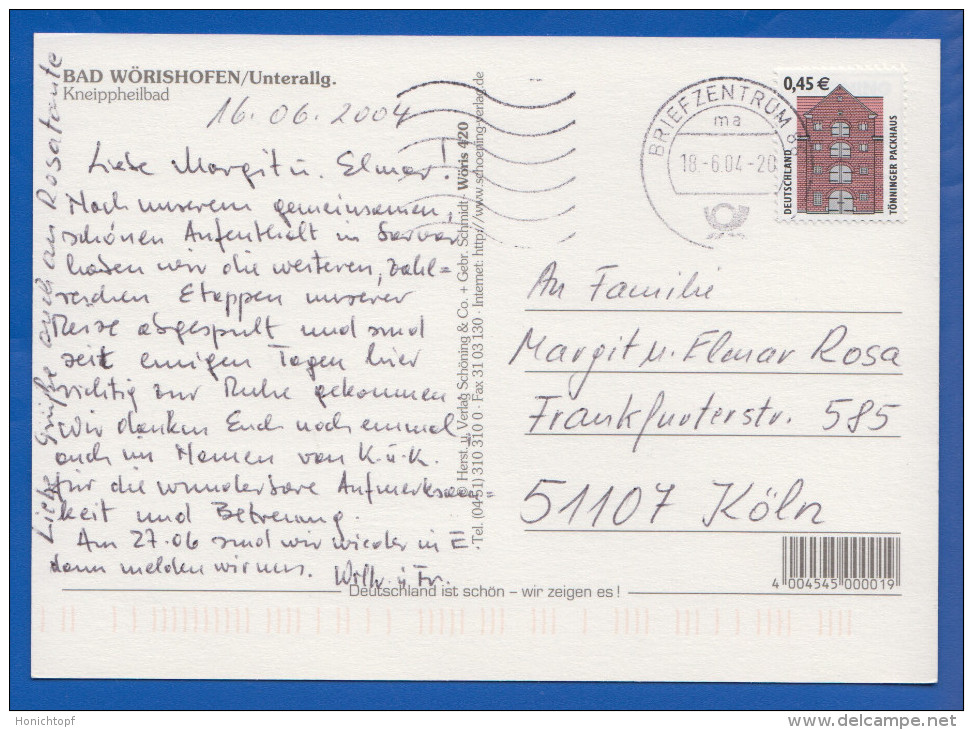 BAD WÖRISHOFEN/Unterallg.
Kneippheilbad
16.06.2004
Liebe Margit u. Elmar!
Nach unserem gemeinsamen,
schönen Aufenthalt in
haben wir die weiteren, zahl=
reichen Etappen unserer
Reise abgespult und sind
seit einigen Tagen hier
richtig zur Ruhe gekommen
Wir danken Euch noch einmal,
auch im Namen von K.u.K.
für die wunderbare Aufmerksam=
keit und Betreuung.
Am 27.06 sind wir wieder in E.
dann melden wir uns.
Liebe Grüße auch an Rosatante
© Herst. u. Verlag Schöning & Co. + Gebr. Schmidt · Wöris 420
Tel. (04 51) 310 310 0 · Fax 31 03 130 · Internet: http://www.schoening-verlag.de
BRIEFZENTRUM
ma
18.-6.04-20
0,45 €
DEUTSCHLAND
TÖNNINGER PACKHAUS
An Familie
Margit u. Elmar Rosa
Frankfurterstr. 585
51107 Köln
4 004545 000019
Deutschland ist schön – wir zeigen es!
Honichtopf
www.delcampe.net